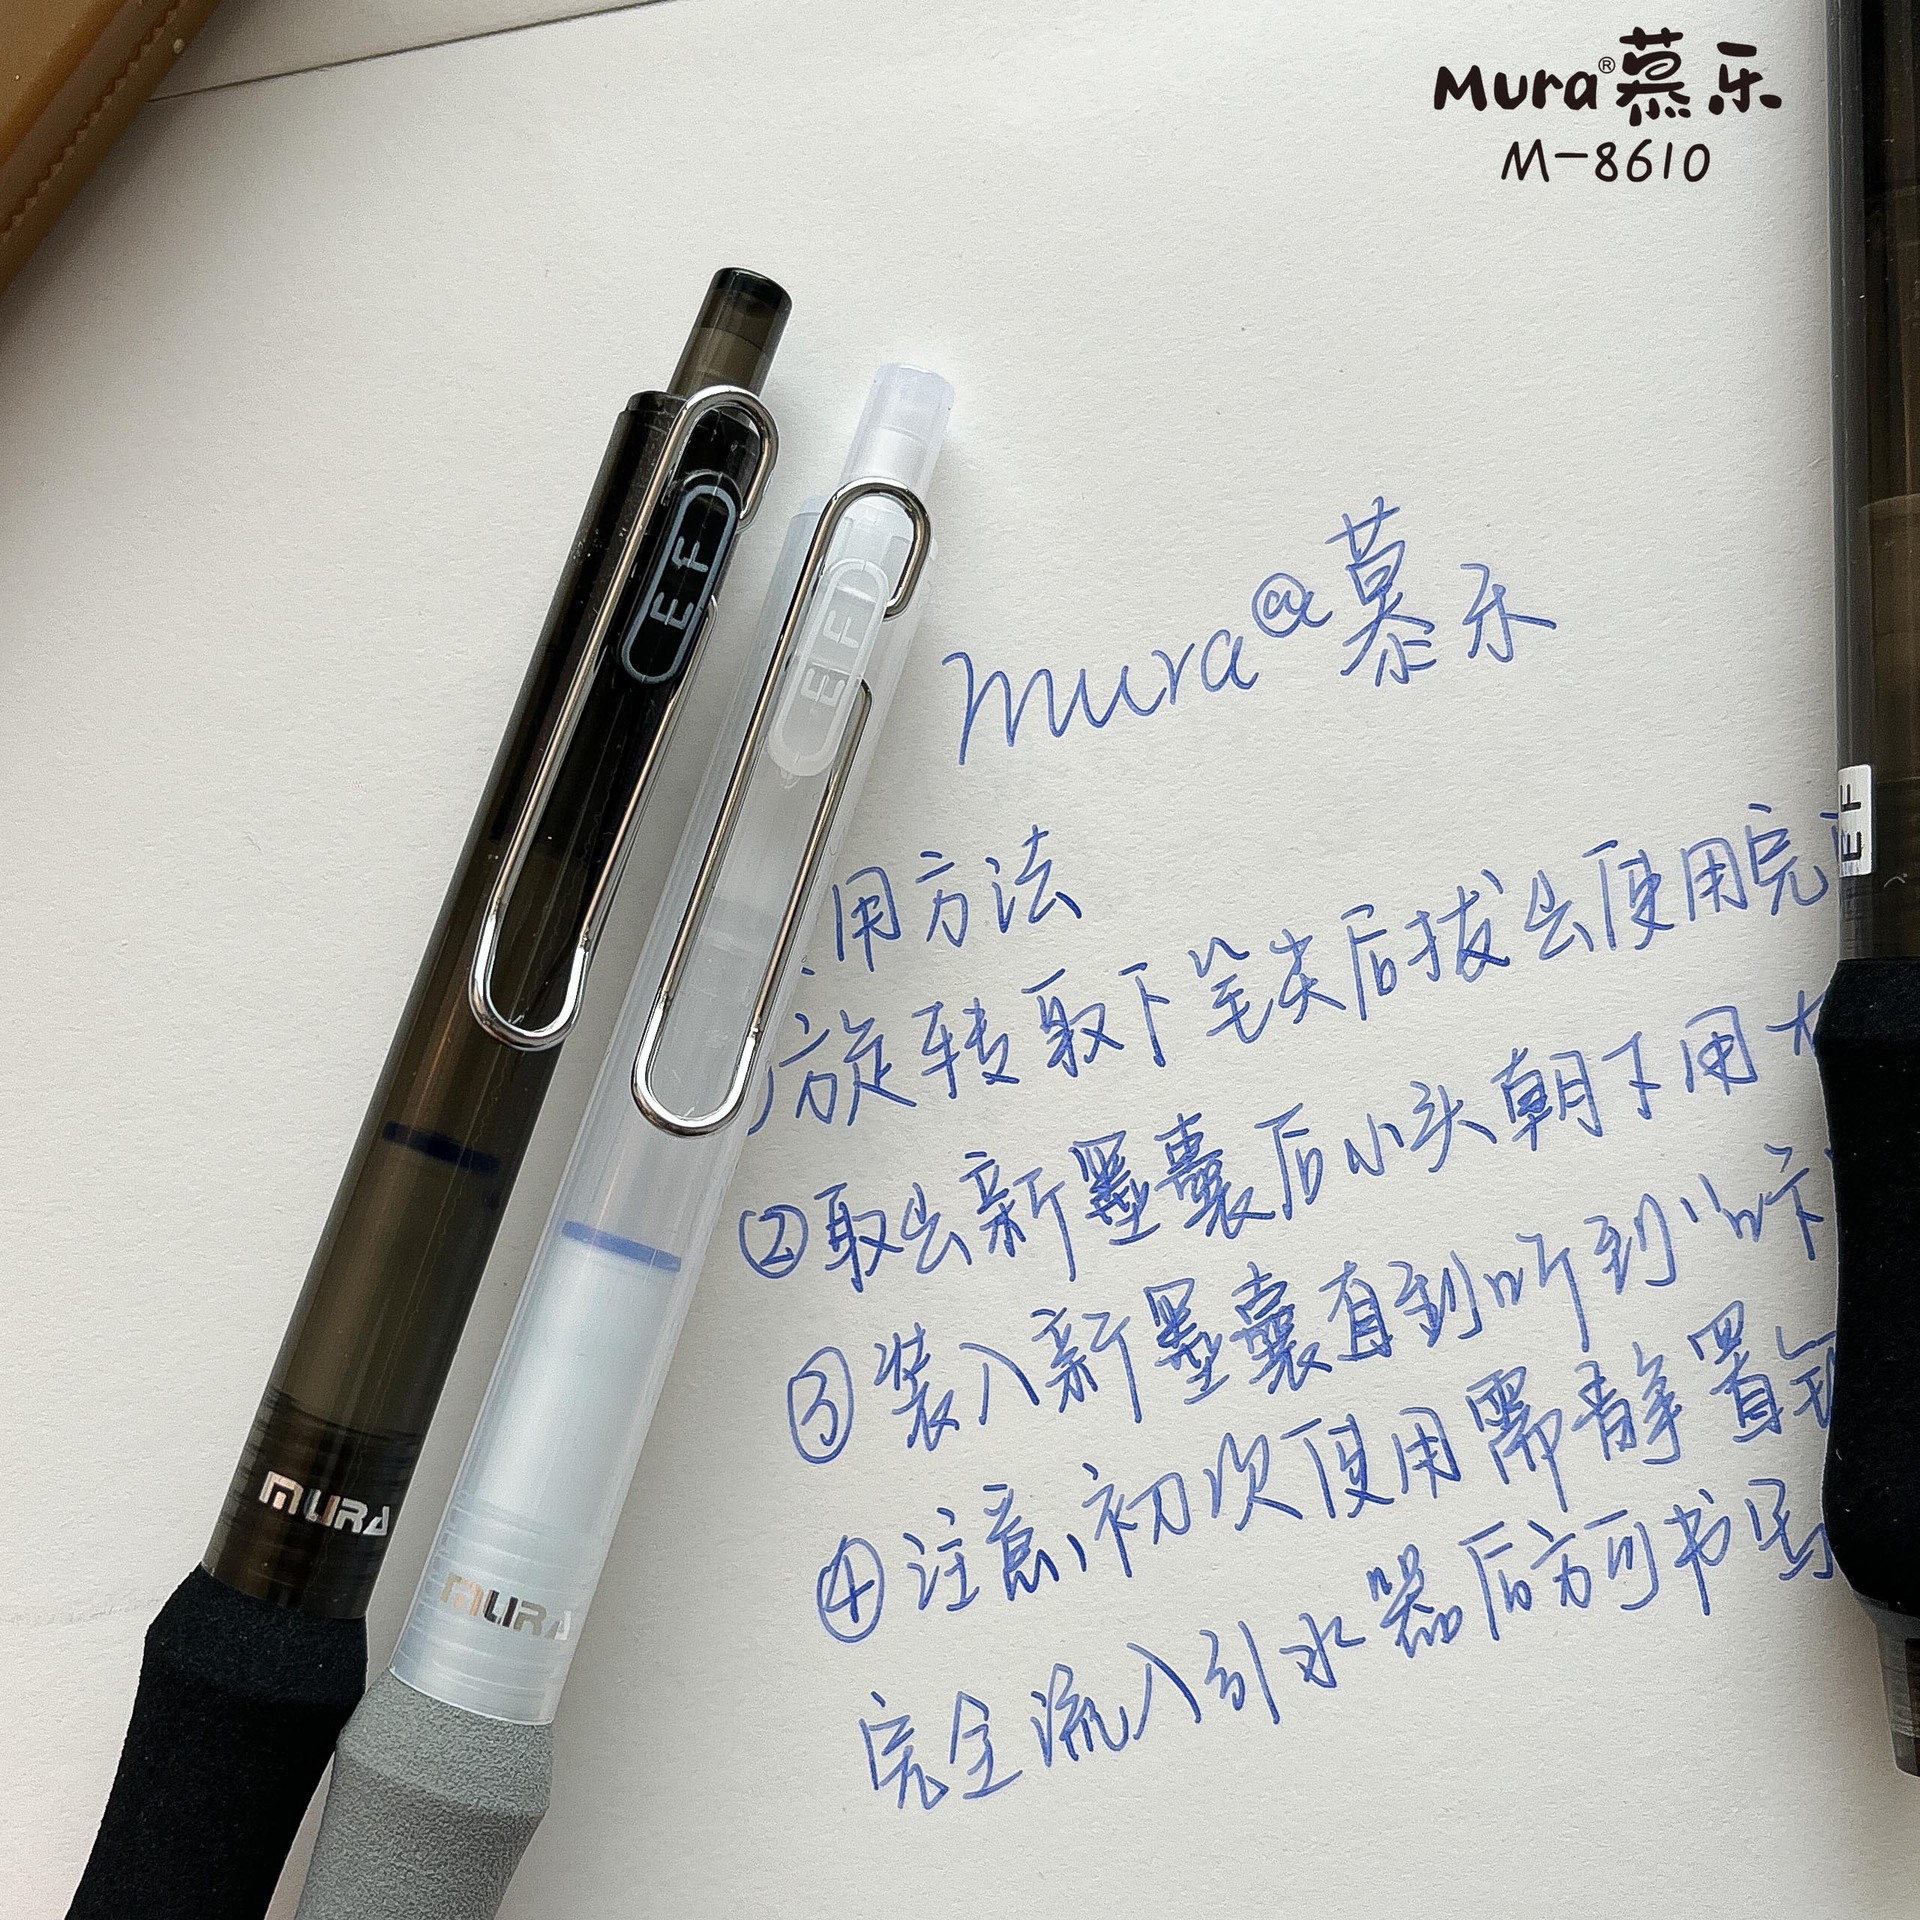 Mura®慕乐
M-8610
EF
EF
EF
MURA
MURA
mura@慕乐
用方法
旋转取下笔尖后拔出使用完
②取出新墨囊后小头朝下用
③装入新墨囊直到听到"咔
④注意,初次使用需静置
完全流入引水器后方可书写